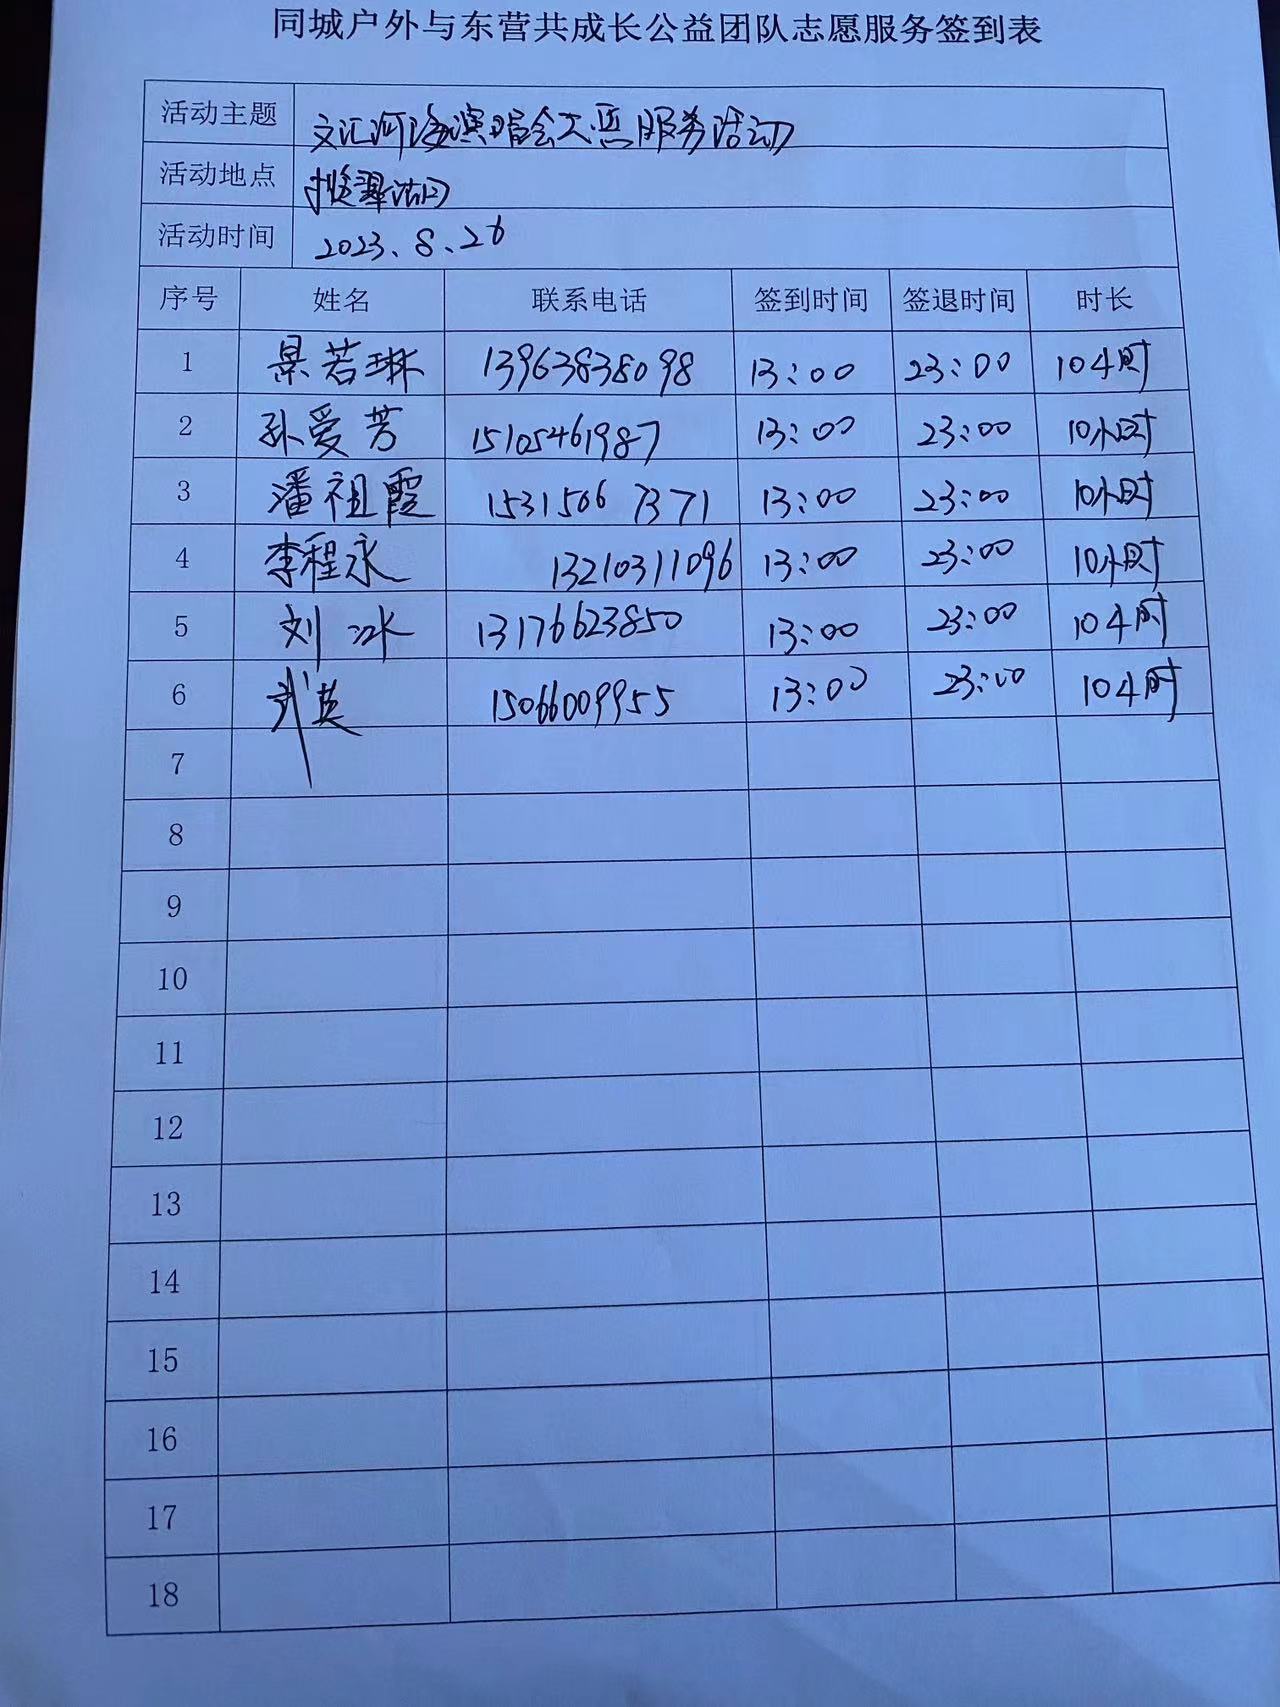 同城户外与东营共成长公益团队志愿服务签到表
活动主题 文汇河海演唱会志愿服务活动
活动地点
活动时间 2023.8.26
序号 姓名 联系电话 签到时间 签退时间 时长
1 景若琳 13963838098 13:00 23:00 10小时
2 孙爱芳 15105461987 13:00 23:00 10小时
3 潘祖霞 15315067371 13:00 23:00 10小时
4 李程永 13210311096 13:00 23:00 10小时
5 刘冰 13176623850 13:00 23:00 10小时
6 武英 15066009955 13:00 23:00 10小时
7
8
9
10
11
12
13
14
15
16
17
18